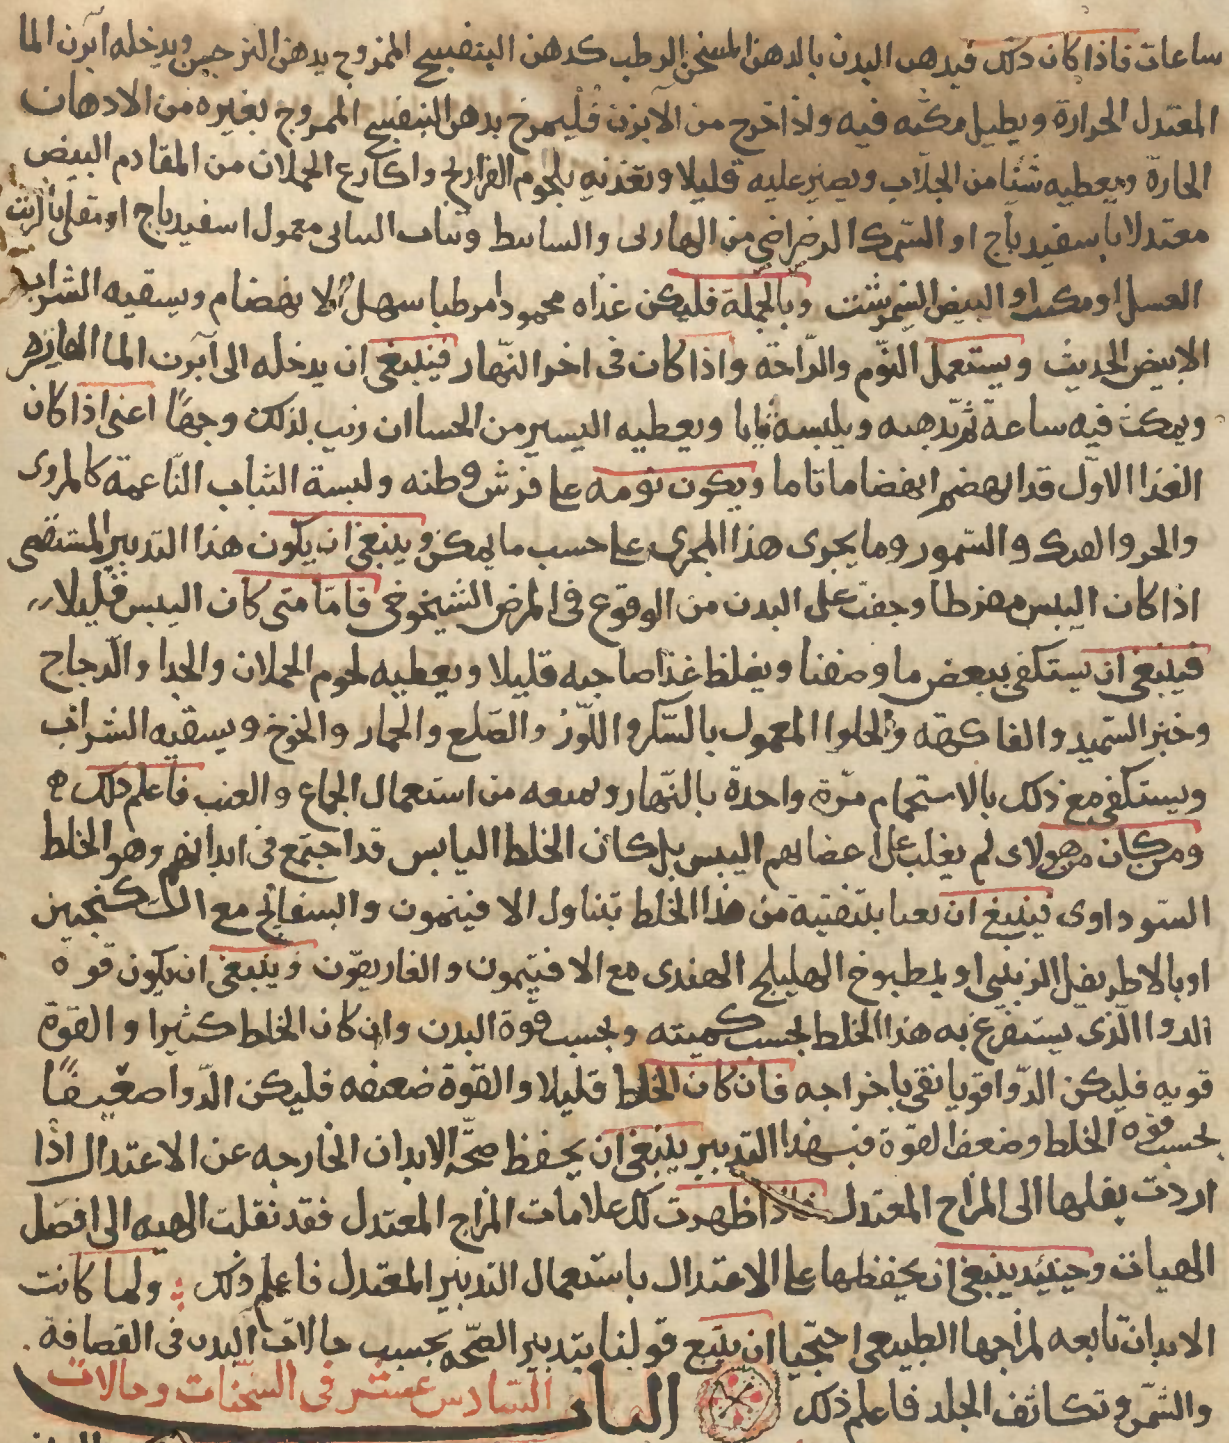 ساعات فاذا كان ذلك فيدهن البدن بالدهن المسخن الرطب كدهن البنفسج الممزوج بدهن النرجس ويدخله آبزن الما
المعتدل الحرارة ويطيل مكثه فيه واذا خرج من الآبزن فليمرخ بدهن البنفسج الممزوج بغيره من الادهان
الحارة ويعطيه شئا من الجلاب ويصبر عليه قليلا وتغذيه بلحوم الفراريج واكارع الحملان من المقادم البيض
معتدلا باسفيدباج او السمك الرضراضي من الهاربى والسابط وبنات البنانى معمول اسفيدباج او مقلى بالزيت
العسل او مكبب او البيض النيمرشت وبالجملة فليكن غذاه محمودا مرطبا سهل الانهضام ويسقيه الشراب
الابيض الحديث ويستعمل النوم والراحة واذا كان فى اخر النهار فينبغى ان يدخله الى آبزن الما الفاتر
ويمكث فيه ساعة ثم يدهنه ويلبسه ثيابا ويعطيه اليسير من الحسا ان رئيت لذلك وجها اعنى اذا كان
الغذا الاول قد انهضم انهضاما تاما ويكون نومه على فرش وطئه ولبسة الثياب الناعمة كالمروى
والخز والفنك والسمور وما يجرى هذا المجرى على حسب ما يمكن وينبغى ان يكون هذا التدبير المستقصى
اذا كان اليبس مفرطا وخفت على البدن من الوقوع فى المرض الشيخوخى فاما متى كان اليبس قليلا
فينبغى ان يستكفى ببعض ما وصفنا ويغلظ غذا صاحبه قليلا ويعطيه لحوم الحملان والجدا والدجاج
وخبز السميد والفاكهة والحلوا المعمول بالسكر واللوز والصلع والجمار والخوخ ويسقيه الشراب
ويستكفى مع ذلك بالاستحمام مرة واحدة بالنهار ويمنعه من استعمال الجماع والتعب فاعلم ذلك
ومن كان من هولاى لم يغلب على اعضايهم اليبس بل كان الخلط اليابس قد اجتمع فى ابدانهم وهو الخلط
السوداوى فينبغى ان يعنا بتنقية من هذا الخلط بتناول الافتيمون والبسفايج مع السكنجبين
او بالاطريفل الزبيبى او بمطبوخ الهليلج الهندى مع الافتيمون والغاريقون وينبغى ان يكون قوة
الدوا الذى يستفرغ به هذا الخلط بحسب كميته وبحسب قوة البدن وان كان الخلط كثيرا والقوة
قويه فليكن الدوا قويا نقى باخراجه فان كان الخلط قليلا والقوة ضعيفه فليكن الدوا ضعيفا
بحسب قوه الخلط وضعف القوة فبهذا التدبير ينبغى ان يحفظ صحة الابدان الخارجه عن الاعتدال اذا
اردت نقلها الى المزاج المعتدل فاذا ظهرت لك علامات المزاج المعتدل فقد نقلت الهيه الى افضل
الهيات وحينئذ ينبغى ان يحفظها على الاعتدال باستعمال التدبير المعتدل فاعلم ذلك ولما كانت
الابدان تابعه لمزاجها الطبيعى احتجنا ان يتبع قولنا بتدبير الصحه بحسب حالات البدن فى القصافة
والسمن وتكاثف الجلد فاعلم ذلك الباب السادس عشر فى السحنات وحالات